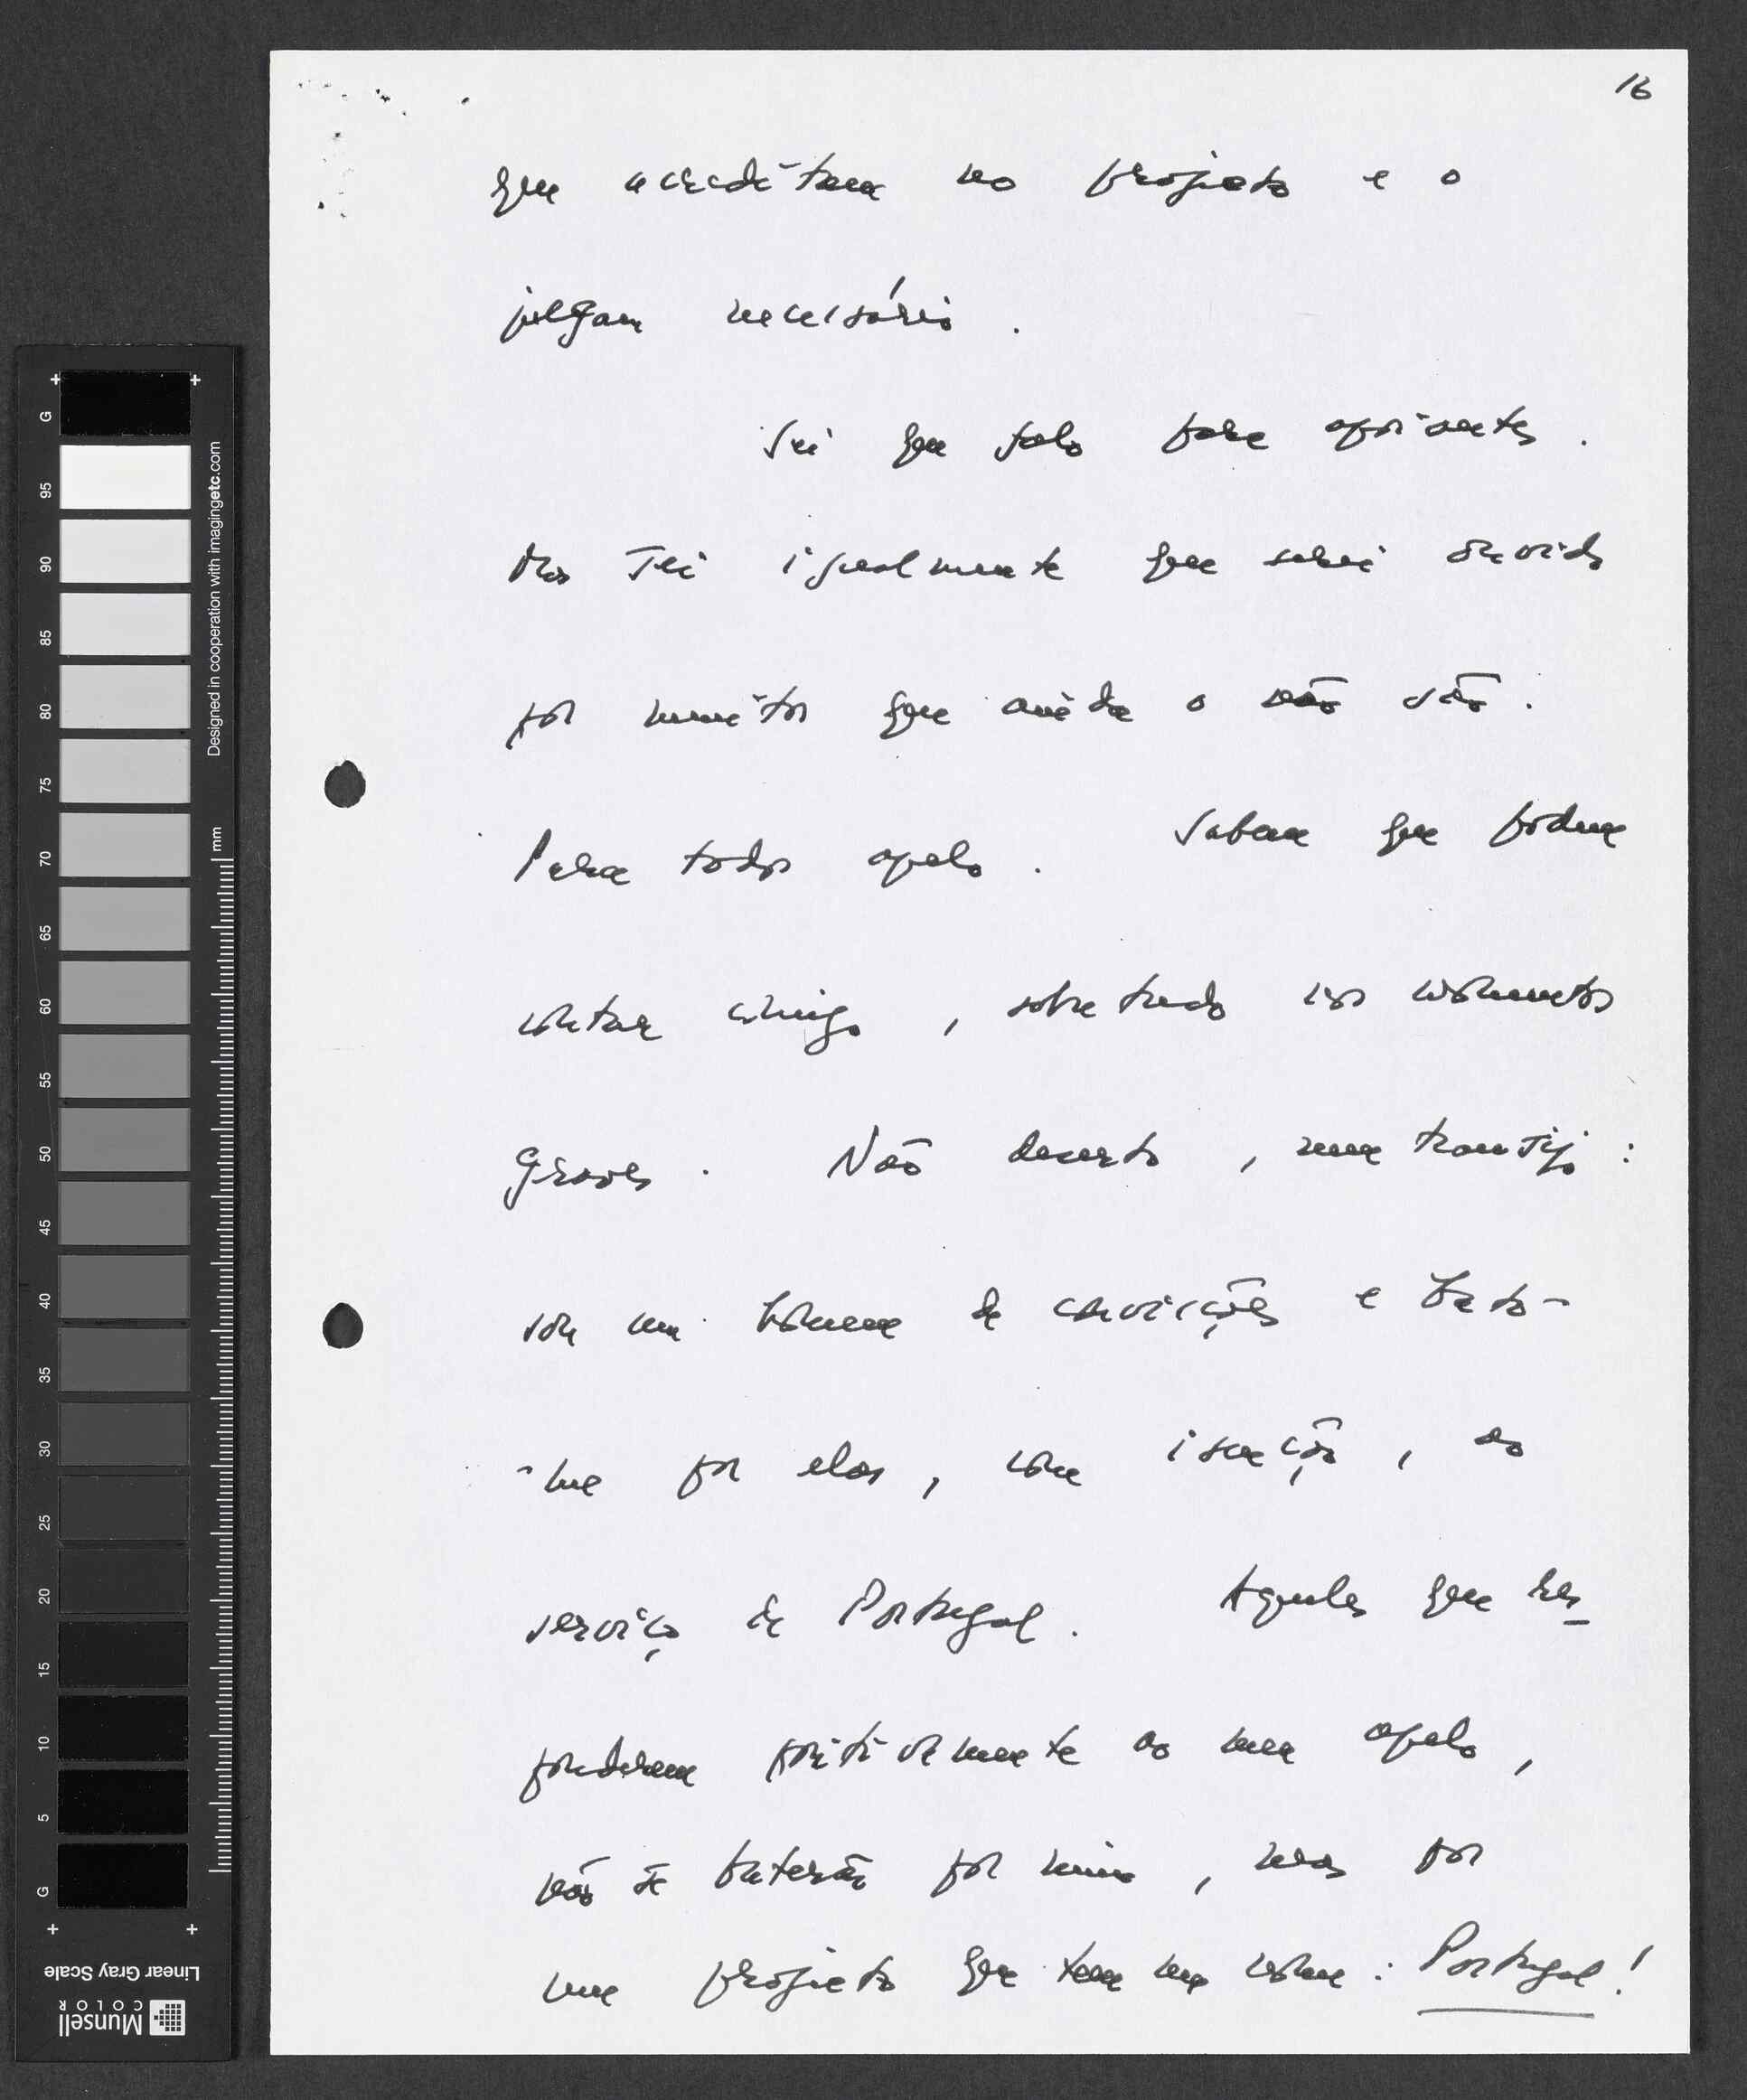 16
que acreditam no projecto e o
julgam necessário.
Sei que falo para apoiantes.
Mas sei igualmente que serei ouvido
por muitos que ainda o não são.
Para todos apelo. Sabem que podem
contar comigo, sobretudo nos momentos
graves. Não deserto, nem transijo:
sou um homem de convicções e bato-
-me por elas, com isenção, ao
serviço de Portugal. Aqueles que res-
ponderem positivamente ao meu apelo,
não se baterão por mim, mas por
um projecto que tem um nome: Portugal!
+ +
G
95
90
85
80
75
70
65
60
55
50
45
40
35
30
25
20
15
10
5
G
+ +
Designed in cooperation with imagingetc.com
mm
Linear Gray Scale
Munsell
COLOR